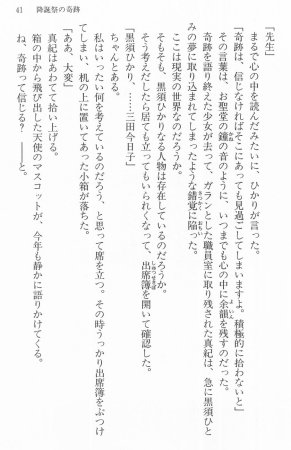 41　降誕祭の奇跡
「先生」
まるで心の中を読んだみたいに、ひかりが言った。
「奇跡は、信じなければそこにあっても見過ごしてしまいますよ。積極的に拾わないと」
その言葉は、お聖堂の鐘の音のように、いつまでも心の中に余韻を残すのだった。
奇跡を語り終えた少女が去って、ガランとした職員室に取り残された真紀は、急に黒須ひと
みの夢に取り込まれてしまったような錯覚に陥った。
ここは現実の世界なのだろうか。
そもそも、黒須ひかりなる人物は存在しているのだろうか。
そう考えだしたら居ても立ってもいられなくなって、出席簿を開いて確認した。
「黒須ひかり、……三田今日子」
ちゃんとある。
私はいったい何を考えているのだろう、と思って席を立つ。その時うっかり出席簿をぶつけ
てしまい、机の上に置いてあった小箱が落ちた。
「ああ、大変」
真紀はあわてて拾い上げる。
箱の中から飛び出した天使のマスコットが、今年も静かに語りかけてくる。
ね、奇跡って信じる？　――と。